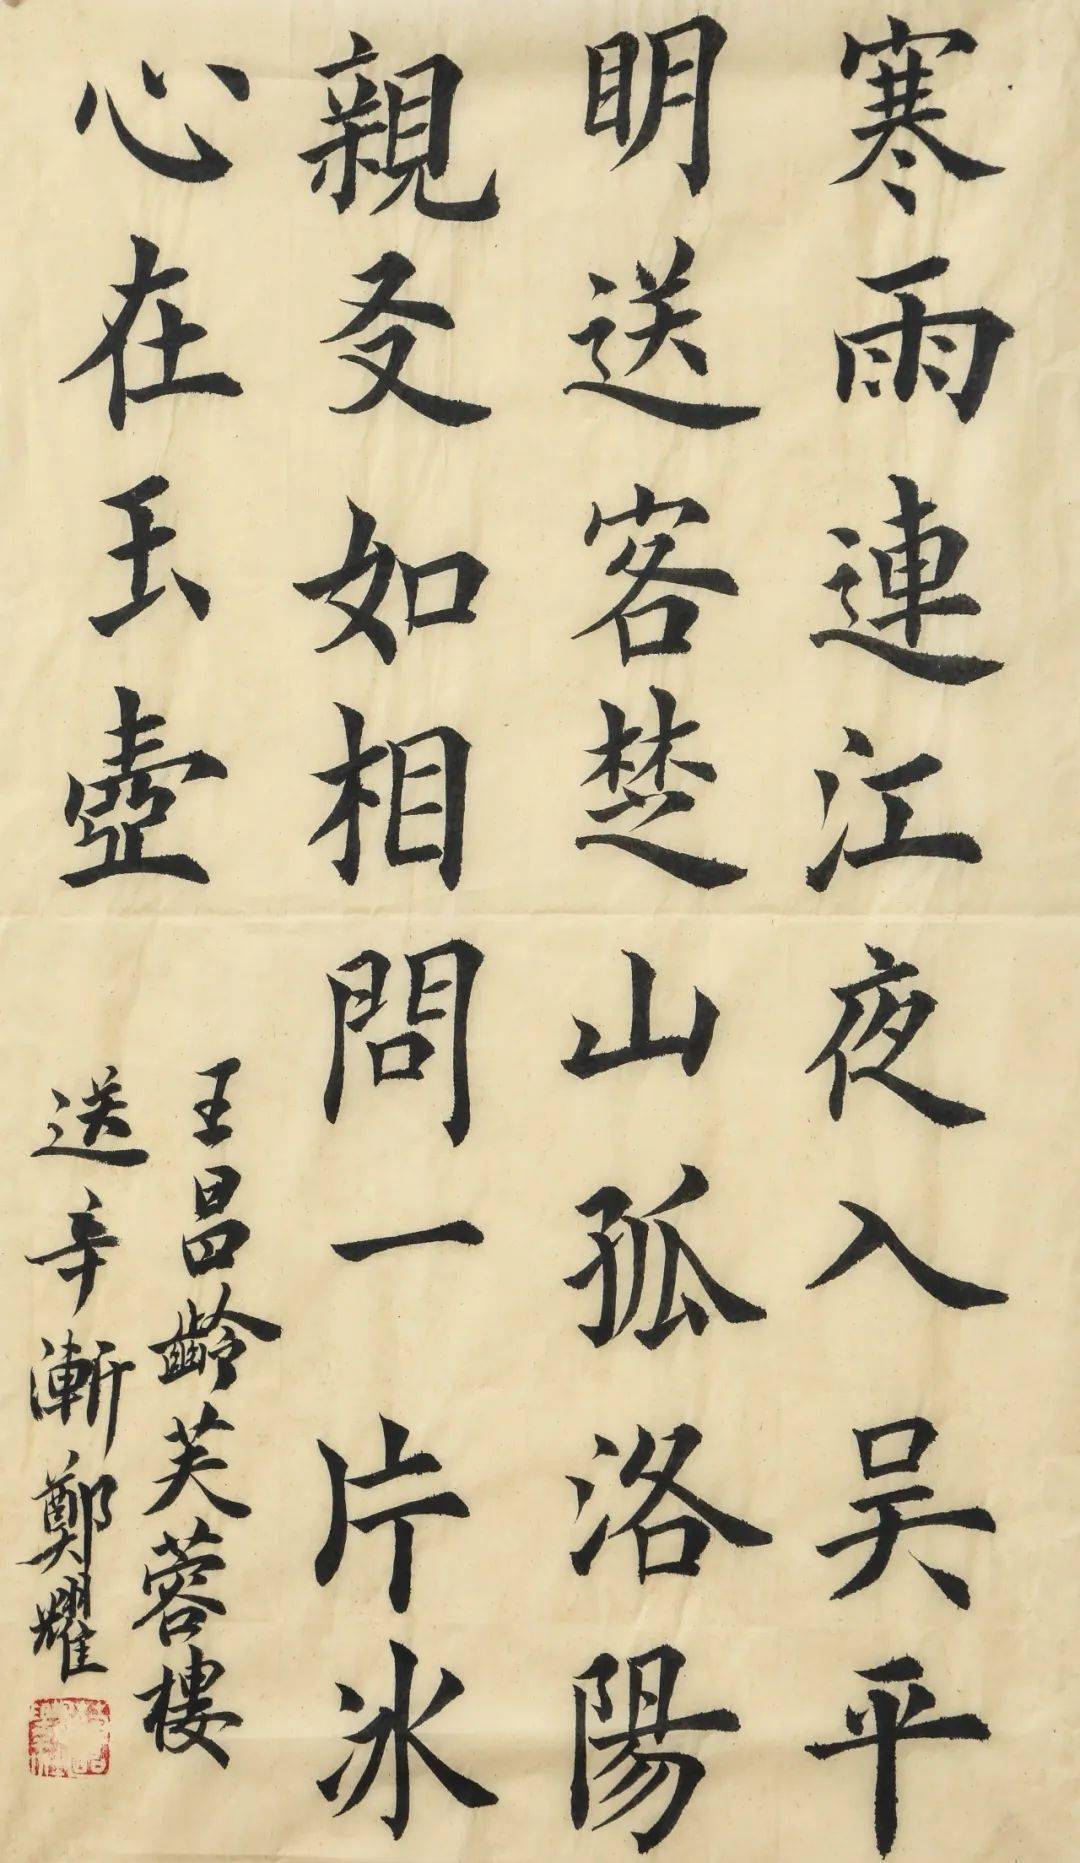 寒雨連江夜入吴平
明送客楚山孤洛陽
親友如相問一片冰
心在玉壺
王昌齡芙蓉樓
送辛漸鄭耀